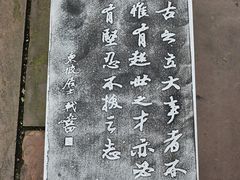 古之立大事者不
惟有超世之才亦必
有堅忍不拔之志
東坡居士軾書